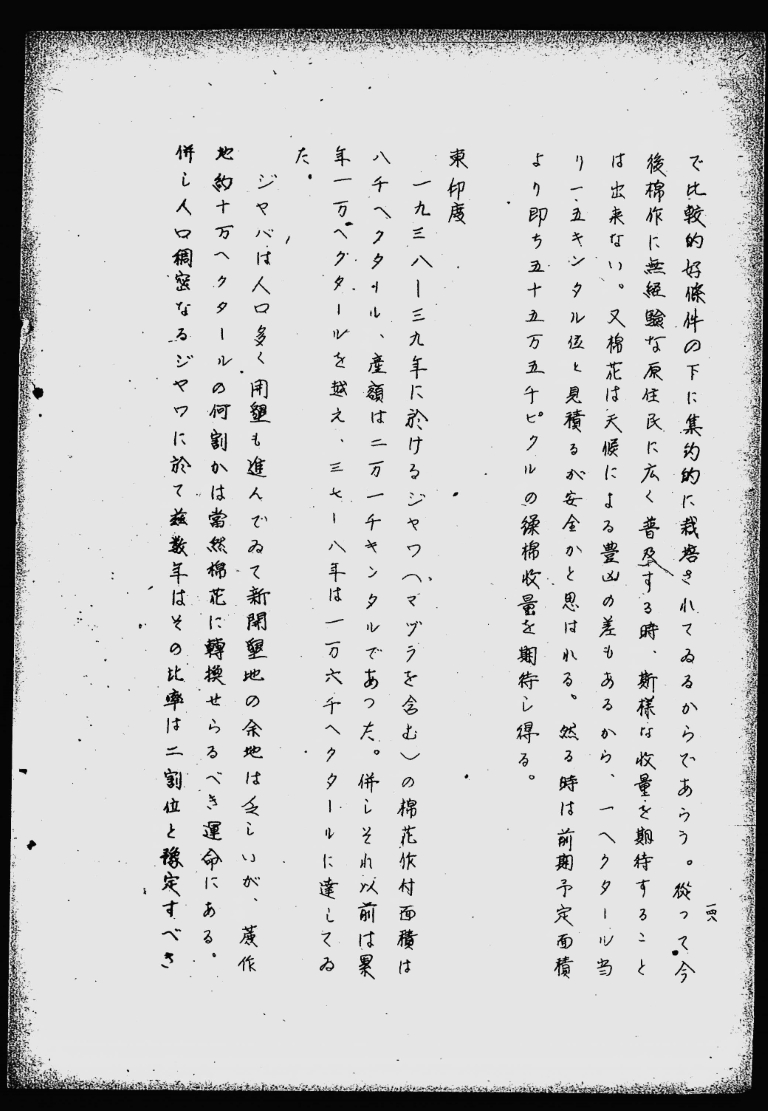 一四六
で比較的好條件の下に集約的に栽培されてゐるからであらう。從つて今
後棉作に無経驗な原住民に広く普及する時、斯様な收量を期待すること
は出来ない。又棉花は天候による豊凶の差もあるから、一ヘクタール当
り一・五キンタル位と見積るが安全かと思はれる。然る時は前期予定面積
より即ち五十五万五千ピクルの繰棉收量を期待し得る。
東印度
一九三八ー三九年に於けるジヤワ(マヅラを含む)の棉花作付面積は
八千ヘクタール、産額は二万一千キンタルであつた。併しそれ以前は累
年一万ヘクタールを越え、三七ー八年は一万六千ヘクタールに達してゐ
た。
ジヤバは人口多く開墾も進んでゐて新開墾地の余地は乏しいが、蔗作
地約十万ヘクタールの何割かは當然棉花に轉換せらるべき運命にある。
併し人口稠密なるジヤワに於て玆数年はその比率は二割位と豫定すべき